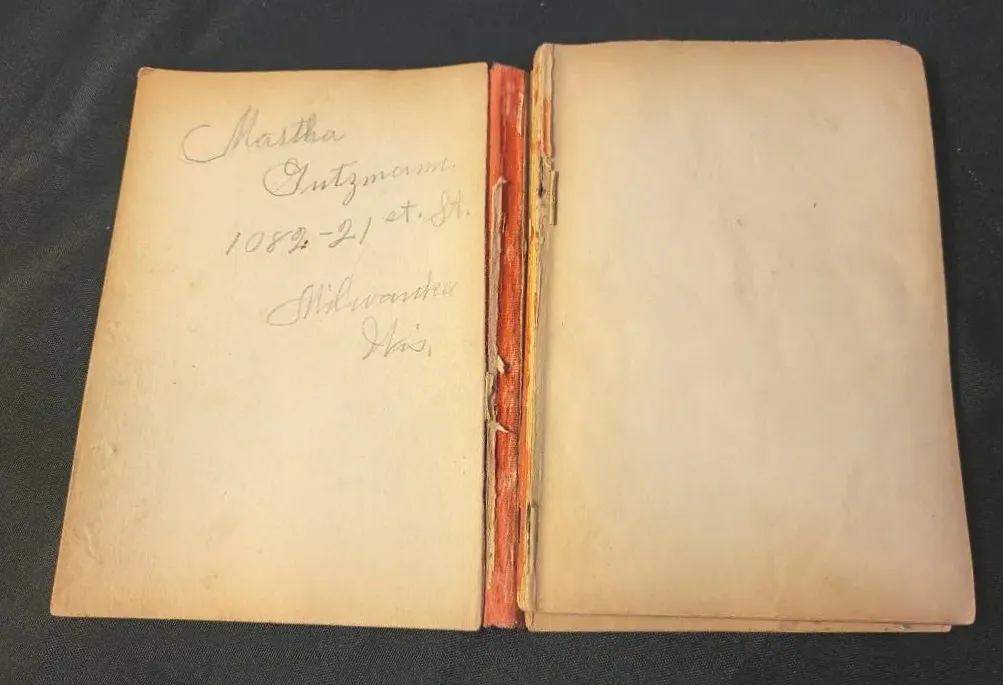 Martha
Gutzmann
1082-21 st. St.
Milwaukee
Wis.